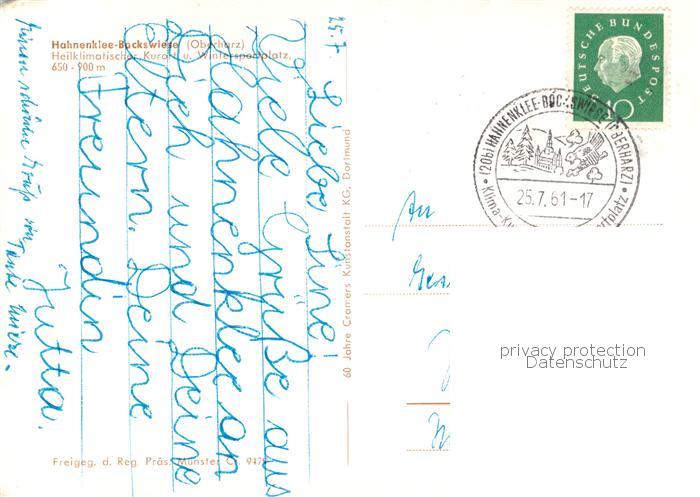 Hahnenklee-Bockswiese (Oberharz)
Heilklimatischer Kurort u. Wintersportplatz,
650 - 900 m
25.7.
Liebe Line!
Viele Grüße aus
Hahnenklee an
Dich und Deine
Eltern. Deine
Freundin
Jutta.
schönen Gruß von
Tante
60 Jahre Cramers Kunstanstalt KG, Dortmund
Freigeg. d. Reg. Präs. Münster
DEUTSCHE BUNDESPOST
10
(20b) HAHNENKLEE-BOCKSWIESE (OBERHARZ)
25.7.61-17
An
privacy protection
Datenschutz